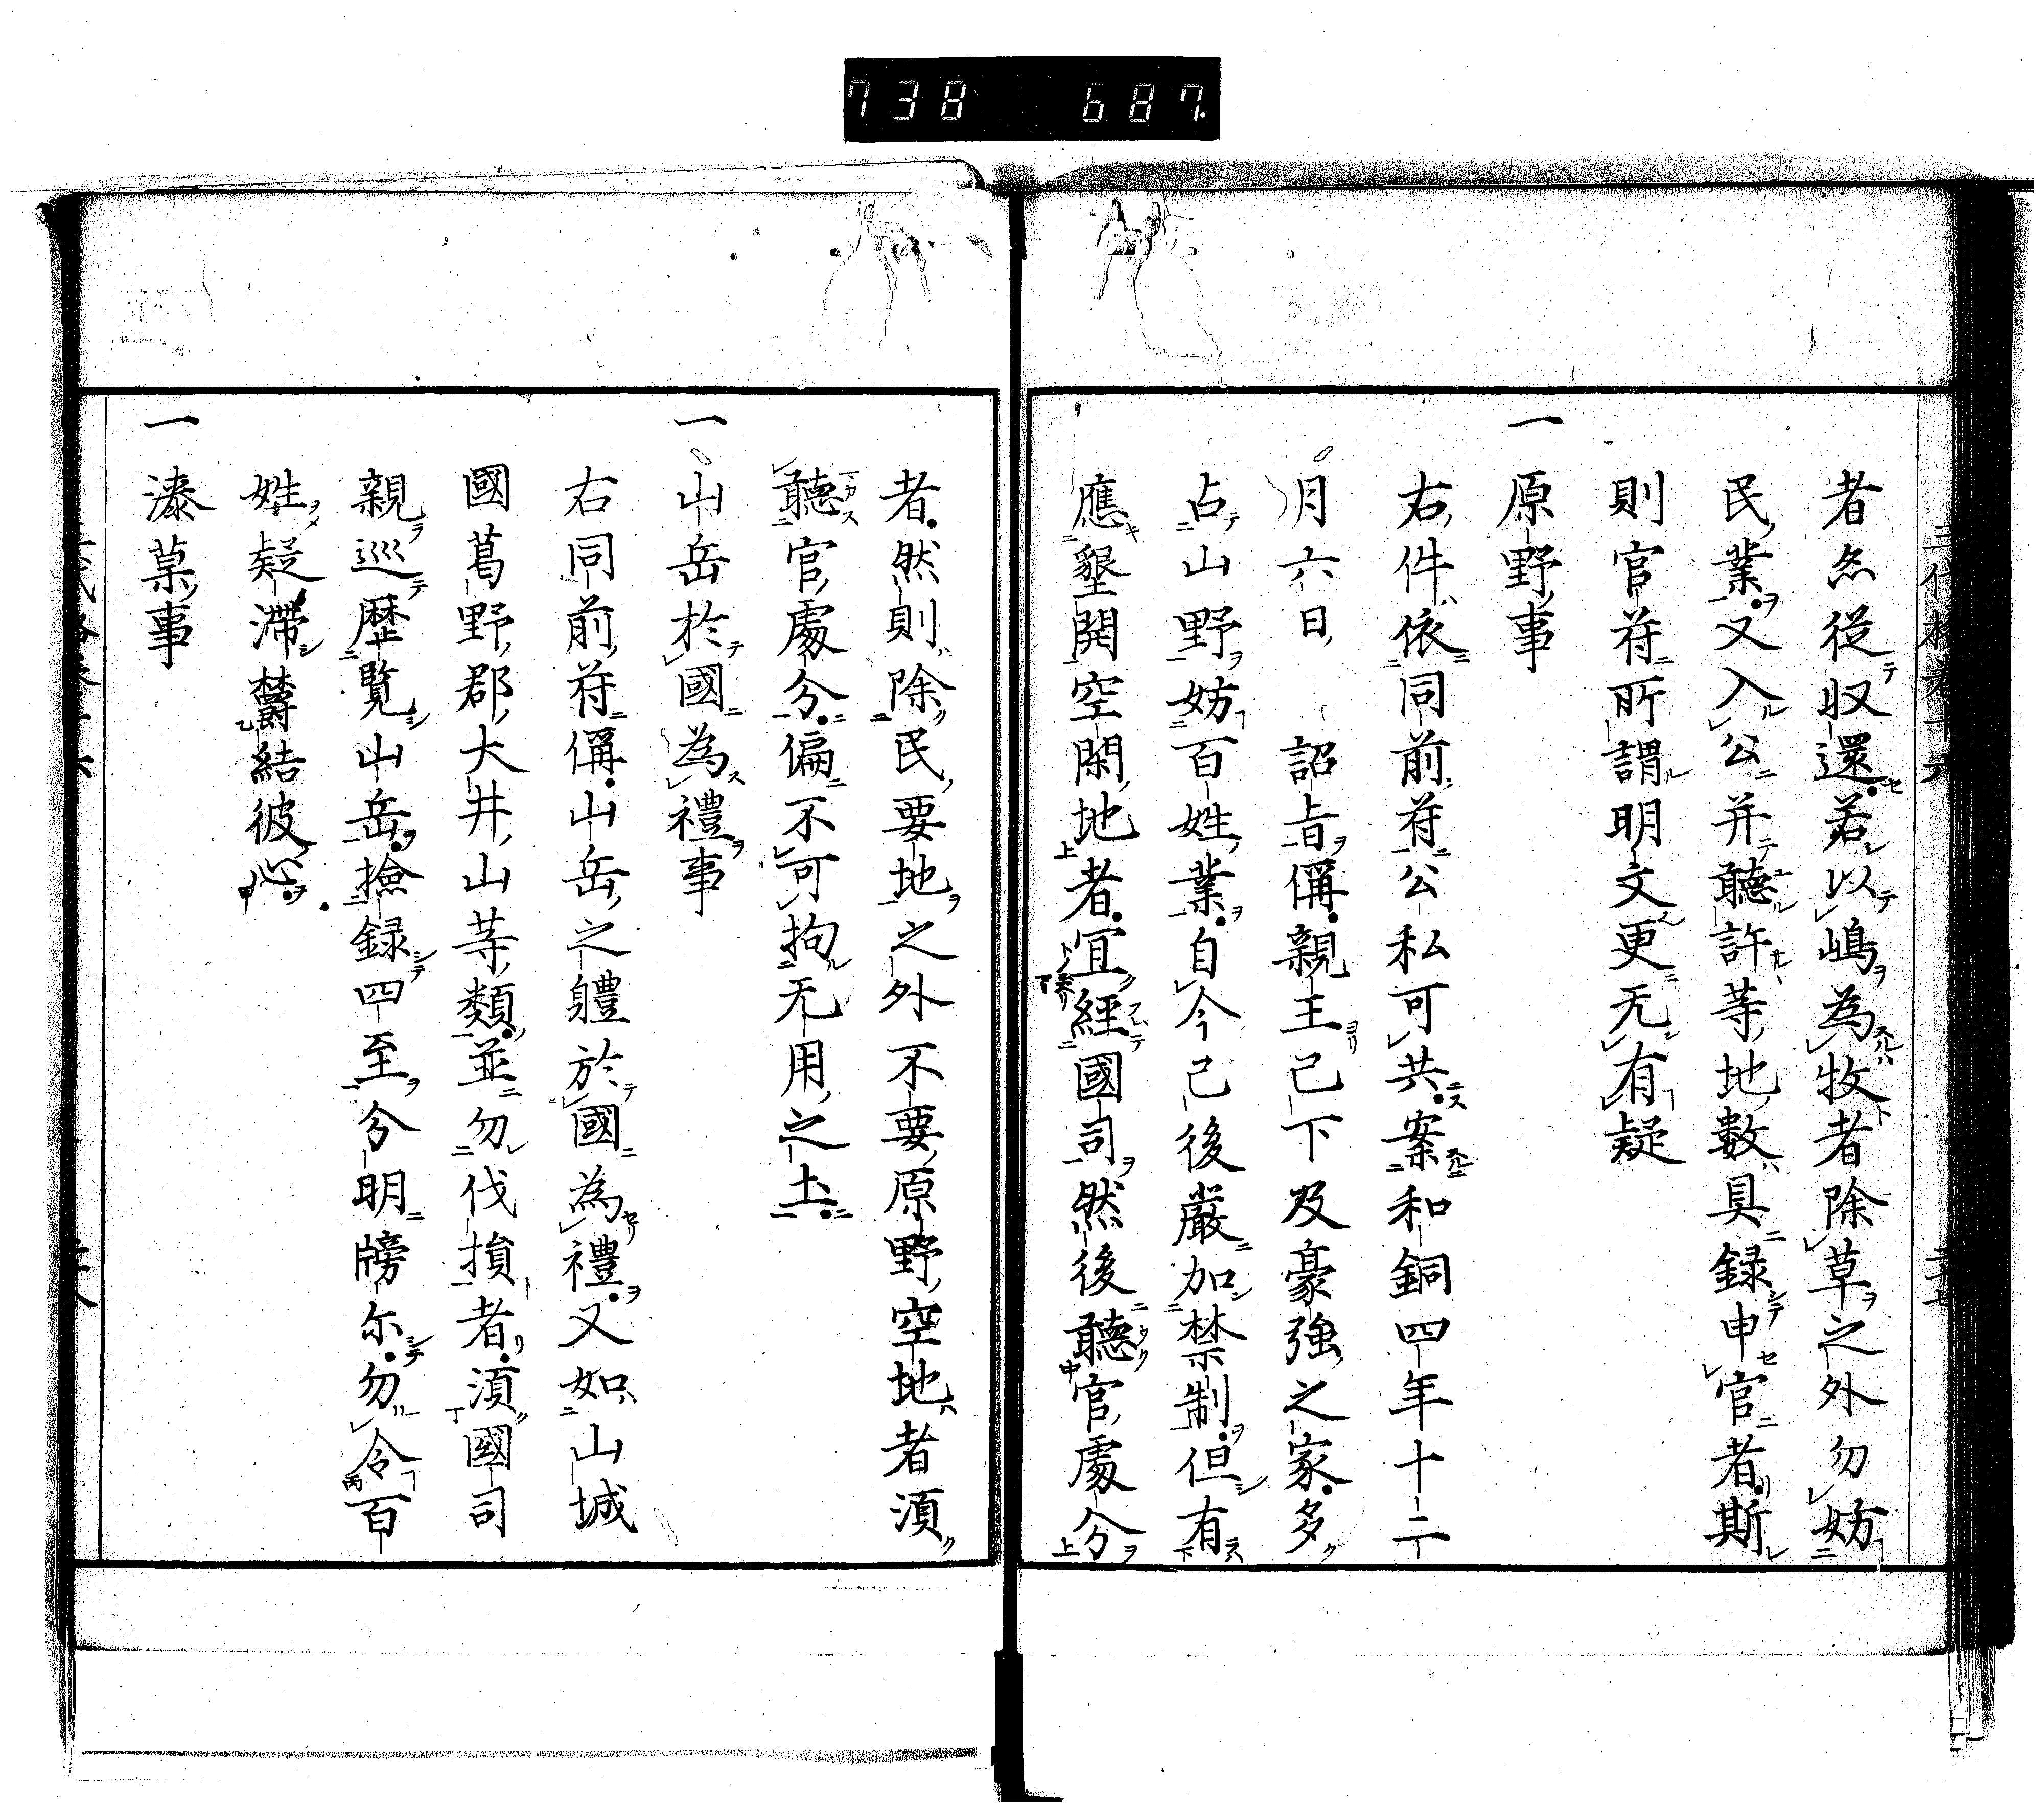 738 687
者尒従収還若以嶋為牧者除草之外勿妨
民業又入公并聽許等地數具録申官者斯
則官苻所謂明文更无有疑
一原野事
右件依同前苻公私可共案和銅四年十二
月六日 詔旨偁親王已下及豪強之家多
占山野妨百姓業自今已後嚴加禁制但有
應墾開空閑地者宜經國司然後聽官處分
者然則除民要地之外不要原野空地者湏
聽官處分偏不可拘无用之土
一山岳於國為禮事
右同前苻偁山岳之體於國為禮又如山城
國葛野郡大井山等類並勿伐損者湏國司
親巡歷覧山岳撿録四至分明牓尓勿令百
姓疑滯欝結彼心
一漆菓事